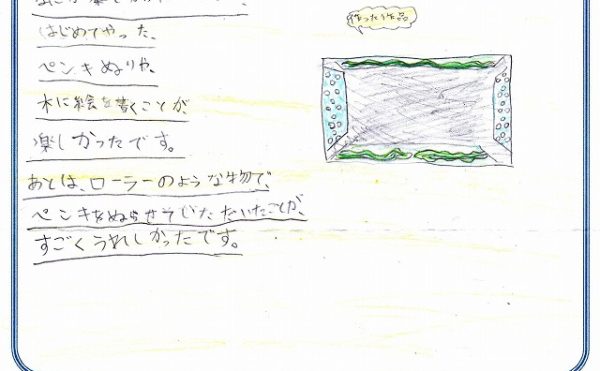 はじめてやった、
ペンキぬりや、
木に絵を書くことが、
楽しかったです。
あとは、ローラーのような物で、
ペンキをぬらせそじた、だいたことが、
すごくうれしかったです。
作った作品